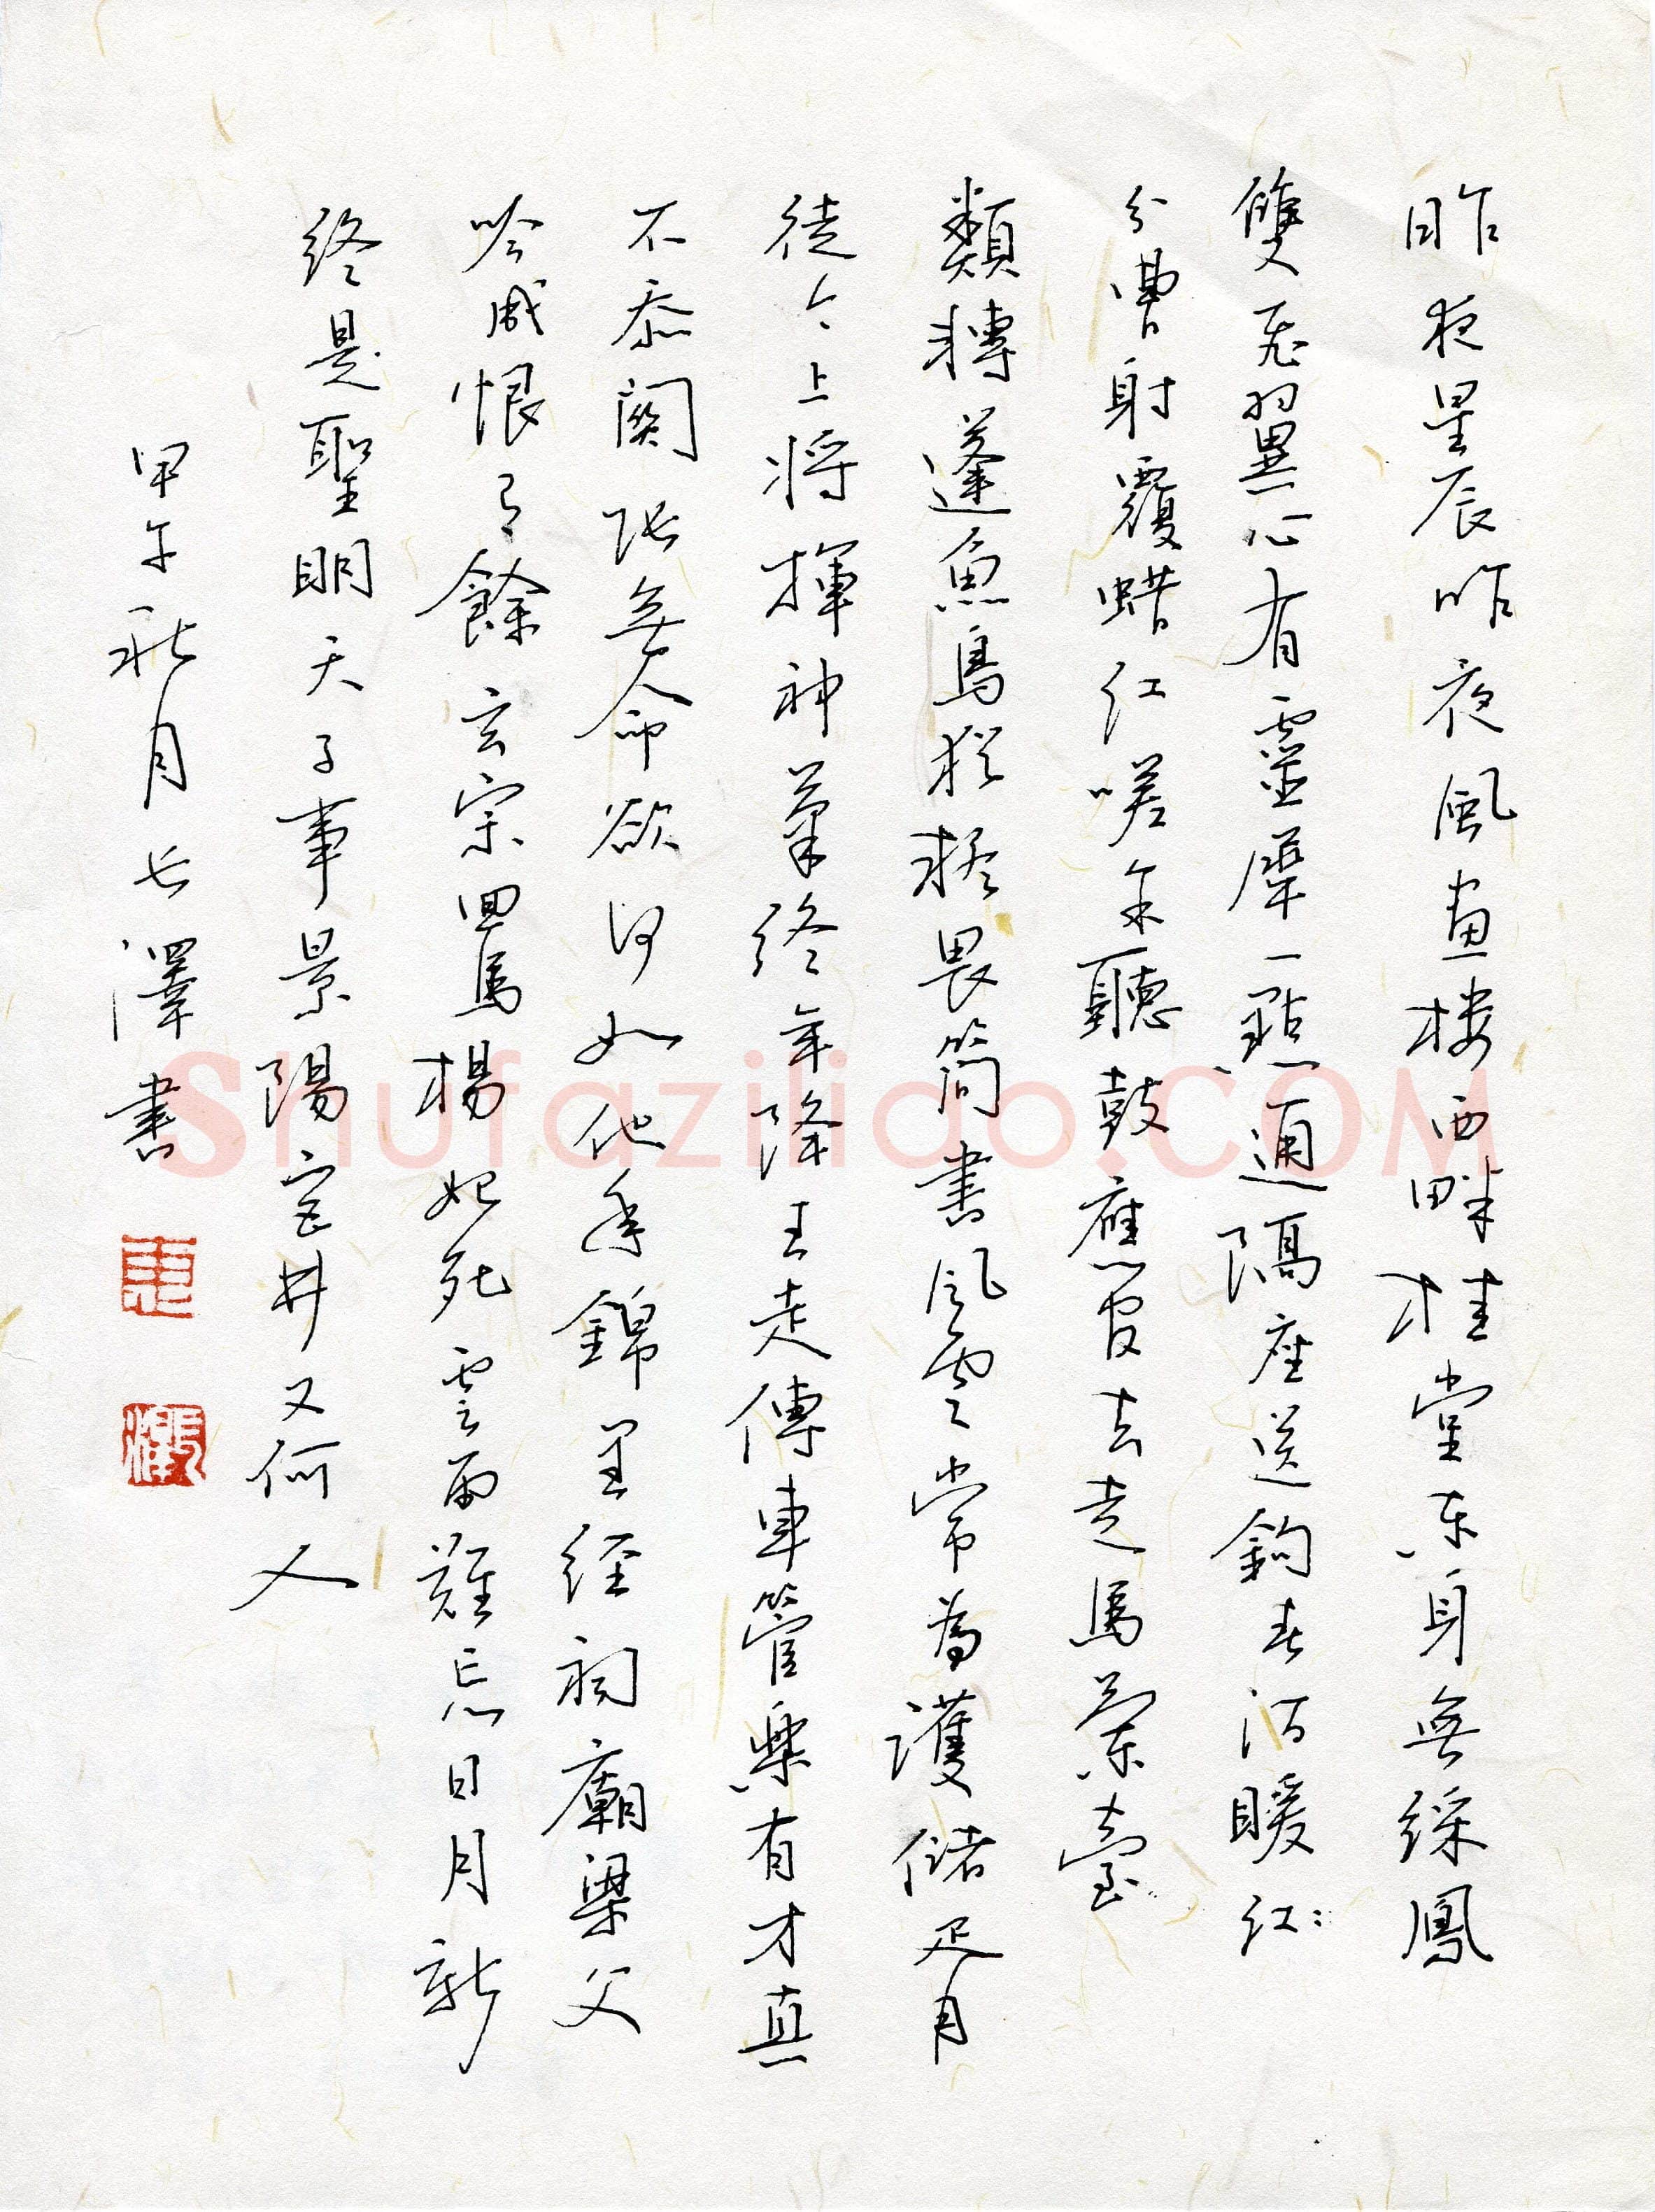 昨夜星辰昨夜風畫楼西畔桂堂东身無綵鳳
雙飛翼心有靈犀一點通隔座送鉤春酒暖红:
分曹射覆蜡红嗟余聽鼓應官去走馬蘭臺
類轉蓬魚鳥猶疑畏簡書風雲常為護儲胥
徒令上將揮神筆終年降王走傳車管樂有才真
不忝關張無命欲何如他年錦里經祠廟梁父
吟成恨有餘玄宗回馬楊妃死雲雨難忘日月新
終是聖明天子事景陽宮井又何人
甲午秋月长澤書
Shufaziliao.COM